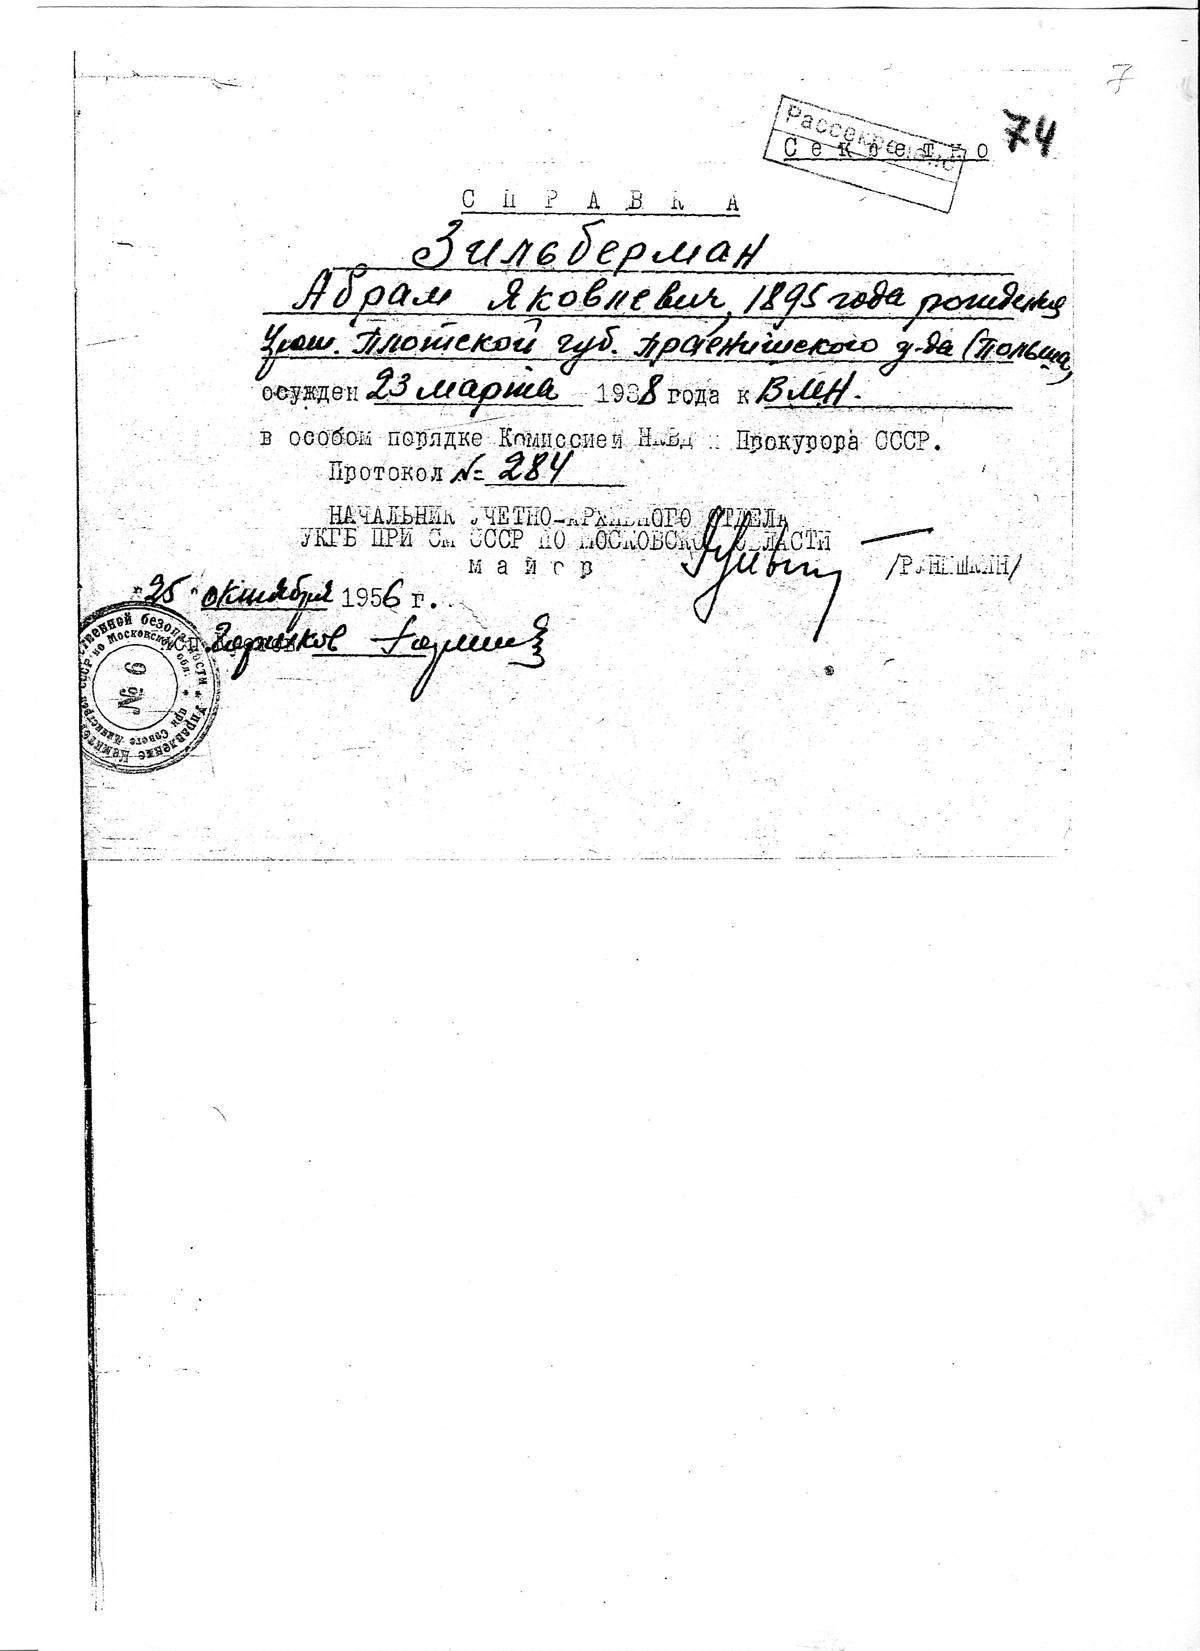 7
74
Рассекречено
Секретно
СПРАВКА
Зильберман
Абрам Яковлевич, 1895 года рождения
Урож. Плотской губ. Праснишского у-да (Польша,
осужден 23 марта 1938 года к ВМН.
в особом порядке Комиссией НКВД и Прокурора СССР.
Протокол № 284
НАЧАЛЬНИК УЧЕТНО-АРХИВНОГО ОТДЕЛА
УКГБ ПРИ СМ СССР ПО МОСКОВСКОЙ ОБЛАСТИ
майор /РУНЕШКИН/
"25" октября 1956 г.
№ 6
Управление Комитета государственной безопасности
при Совете Министров СССР по Московской обл.